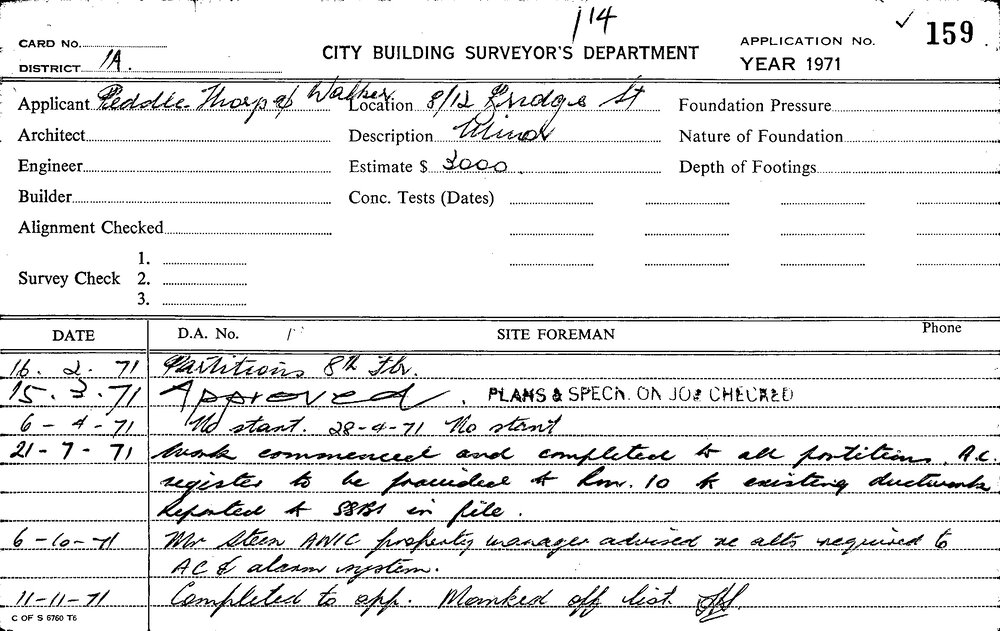 /14
✓ 159
CARD No.
CITY BUILDING SURVEYOR'S DEPARTMENT
APPLICATION No.
DISTRICT 1A.
YEAR 1971
Applicant Peddle Thorp & Walker Location 8/12 Bridge St Foundation Pressure
Architect Description Minor Nature of Foundation
Engineer Estimate $ 3000. Depth of Footings
Builder Conc. Tests (Dates)
Alignment Checked
1.
Survey Check 2.
3.
DATE D.A. No. SITE FOREMAN Phone
16. 2. 71 Partitions 8th Flr.
15. 3. 71 Approved. PLANS & SPECN. ON JOB CHECKED
6-4-71 No start. 28-4-71 No start
21-7-71 Work commenced and completed to all partitions. A.C.
register to be provided to Rm. 10 to existing ductwork
Reported to in file.
6-10-71 Mr Steen property manager advised re alts required to
AC & alarm system.
11-11-71 Completed to app. Marked off list.
C OF S 6760 T6